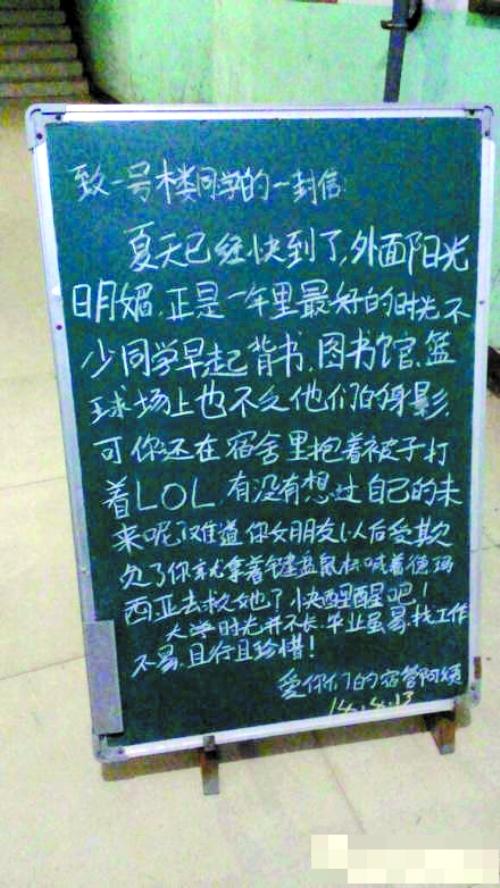 致一号楼同学的一封信:
夏天已经快到了,外面阳光
明媚,正是一年里最好的时光,不
少同学早起背书,图书馆,篮
球场上也不乏他们的身影,
可你还在宿舍里抱着被子打
着LOL,有没有想过自己的未
来呢?难道你女朋友以后受欺
负了你就拿着键盘鼠标喊着德玛
西亚去救她?快醒醒吧!
大学时光并不长,毕业虽易,找工作
不易,且行且珍惜!
爱你们的宿管阿姨
14.4.13